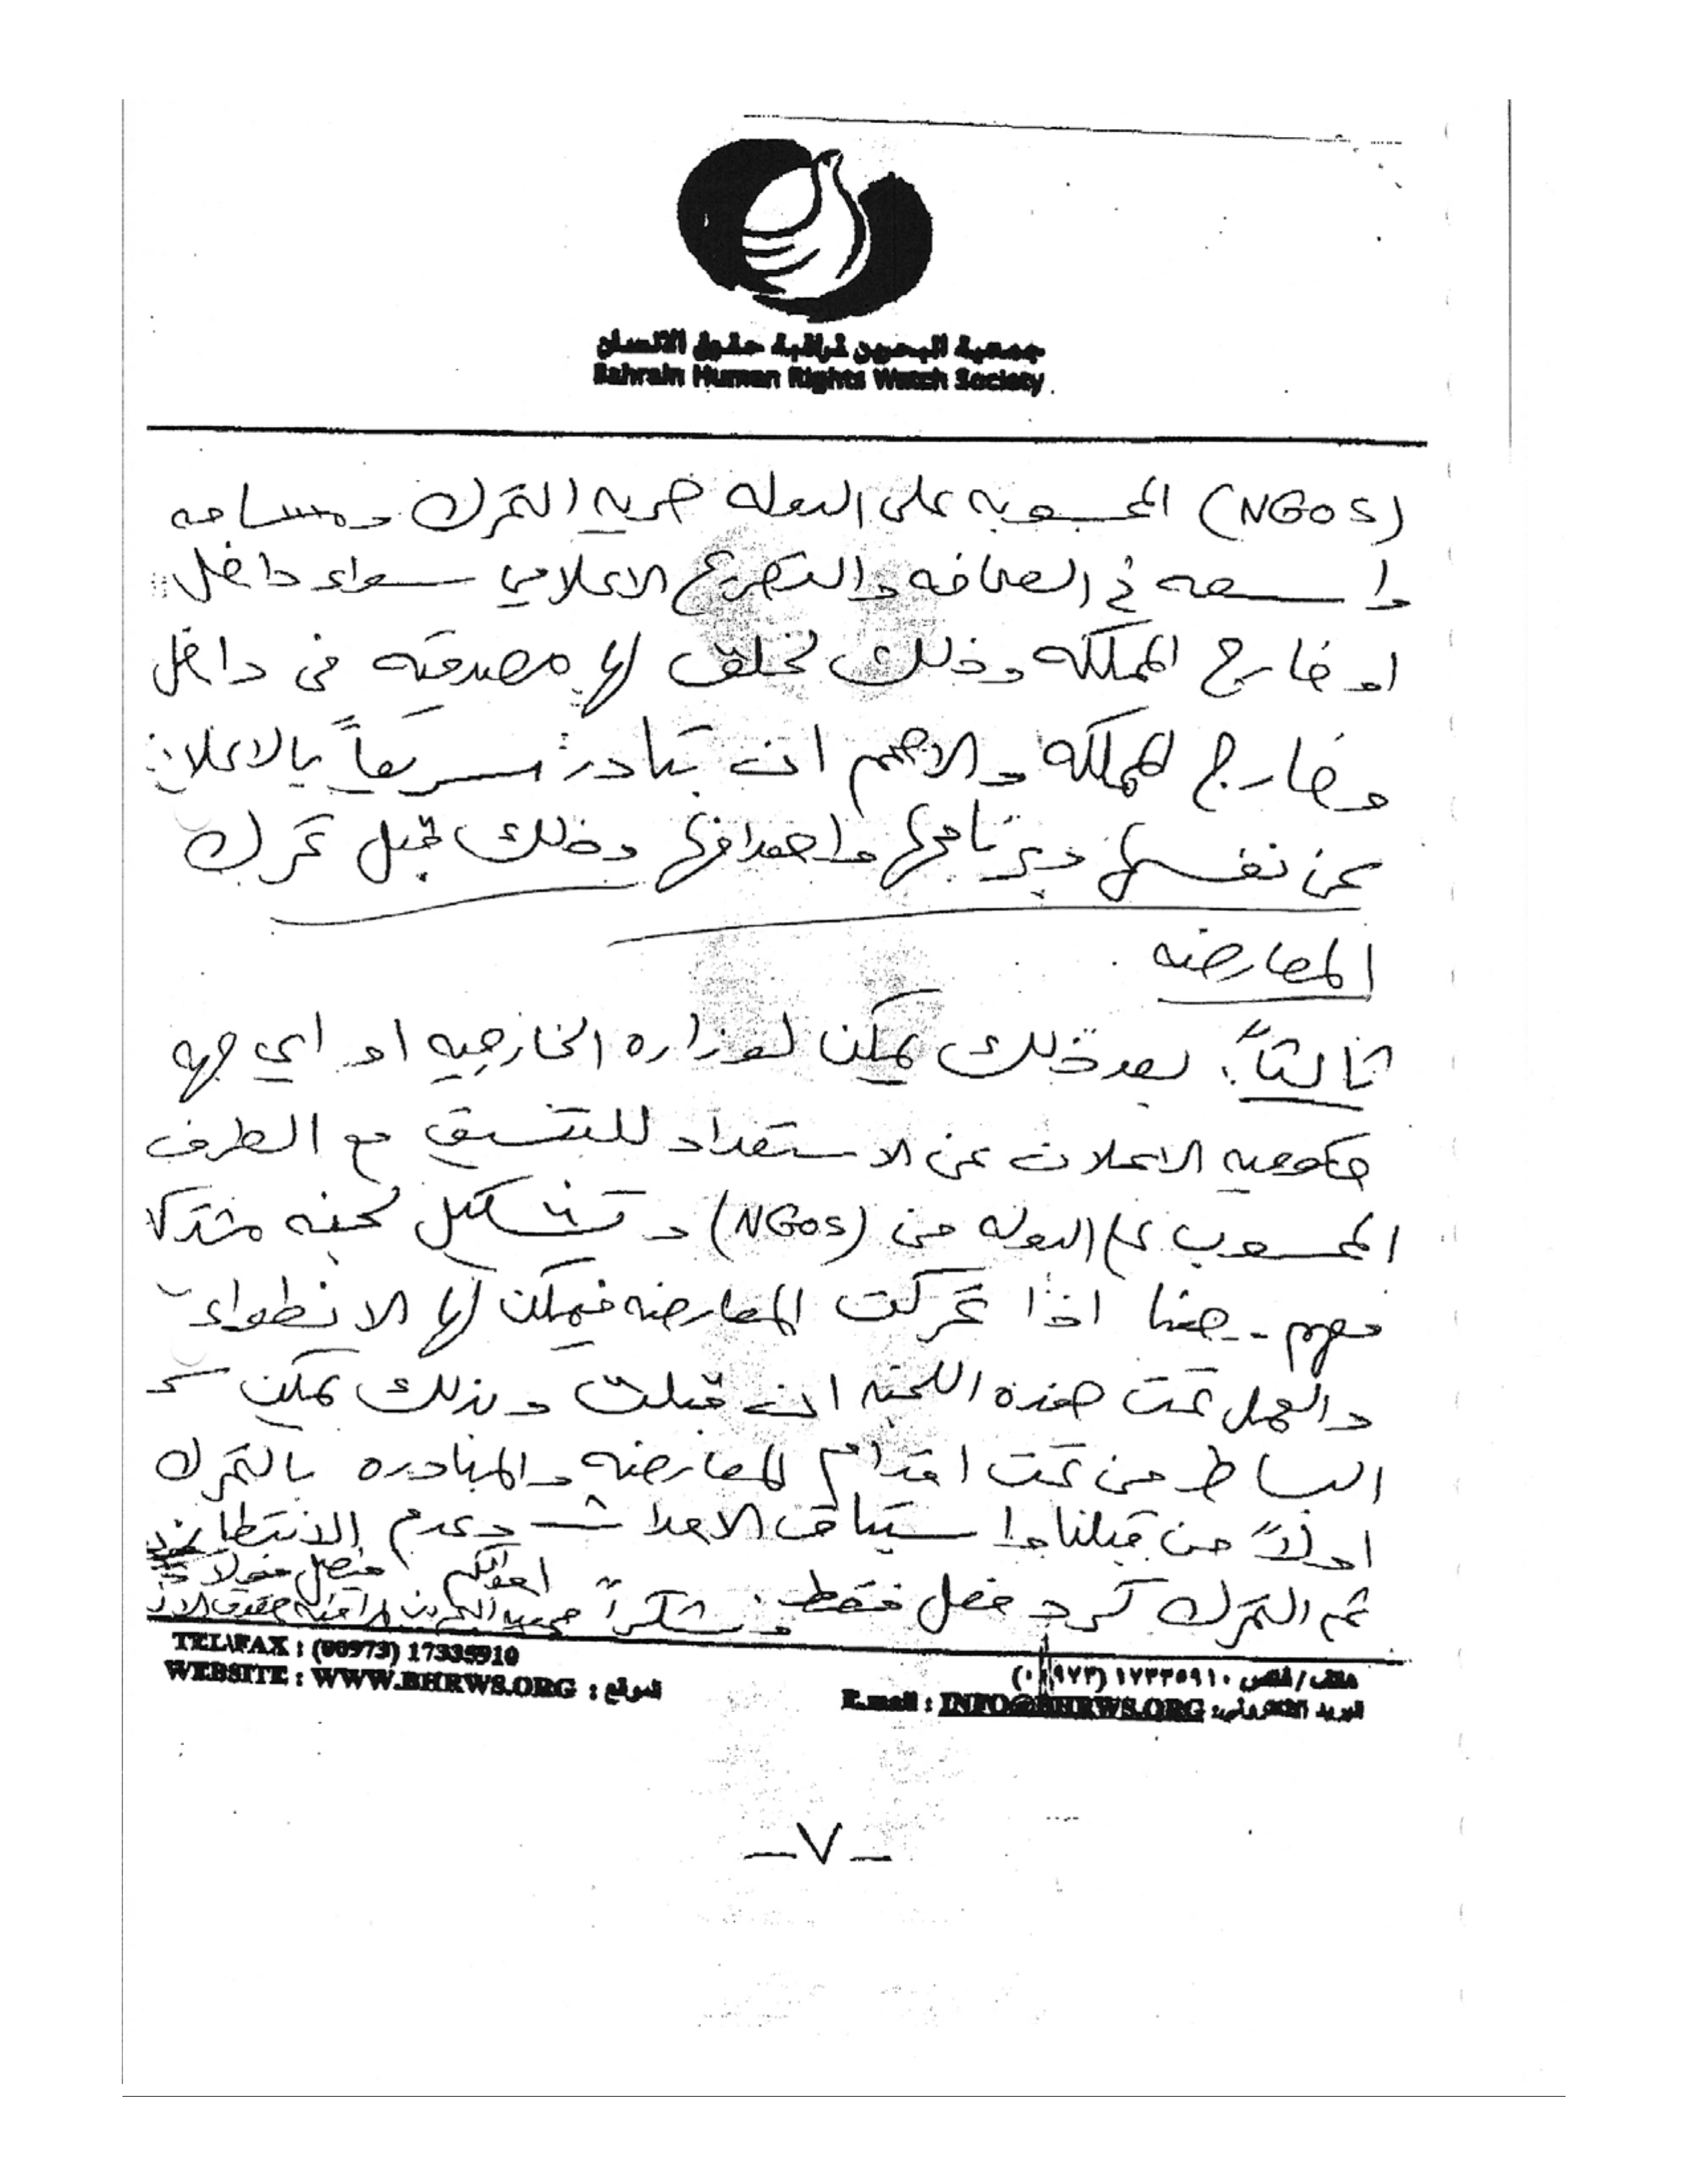 جمعية البحرين لمراقبة حقوق الانسان
Bahrain Human Rights Watch Society
(NGOS) المحسوبه على الدوله حريه التحرك ومساحه
واسعه في الصحافه والتصريح الاعلامي سواء داخل
او خارج المملكه وذلك لخلق لها مصدقيه في داخل
وخارج المملكه والاهم ان تبادر سريعاً بالاعلان
عن نفسها وبرنامجها واهدافها وذلك قبل تحرك
المعارضه
ثالثاً: بعد ذلك يمكن لوزاره الخارجيه او اي جهه
حكوميه الاعلان عن الاستعداد للتنسيق مع الطرف
المحسوب على الدوله من (NGOS) وتشكيل لجنه مشتركه
معهم .. هنا اذا تحركت المعارضه فيمكن لها الانطواء
والعمل تحت هذه اللجنه ان قبلت وبذلك يمكن سحب
البساط من تحت اقدام المعارضه والمبادره بالتحرك
اولاً من قبلنا واستباق الاحداث وعدم الانتظار
ثم التحرك كرد فعل فقط وشكراً اخوانكم
جمعيه البحرين لمراقبه حقوق
TEL\FAX : (00973) 17335910
هاتف/فاكس ١٧٣٣٥٩١٠ (٠٠٩٧٣)
WEBSITE : WWW.BHRWS.ORG : الموقع
E.mail : INFO@BHRWS.ORG :البريد الالكتروني
-٧-